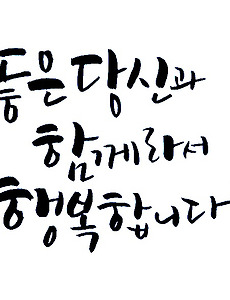 좋은 당신과
함께라서
행복합니다